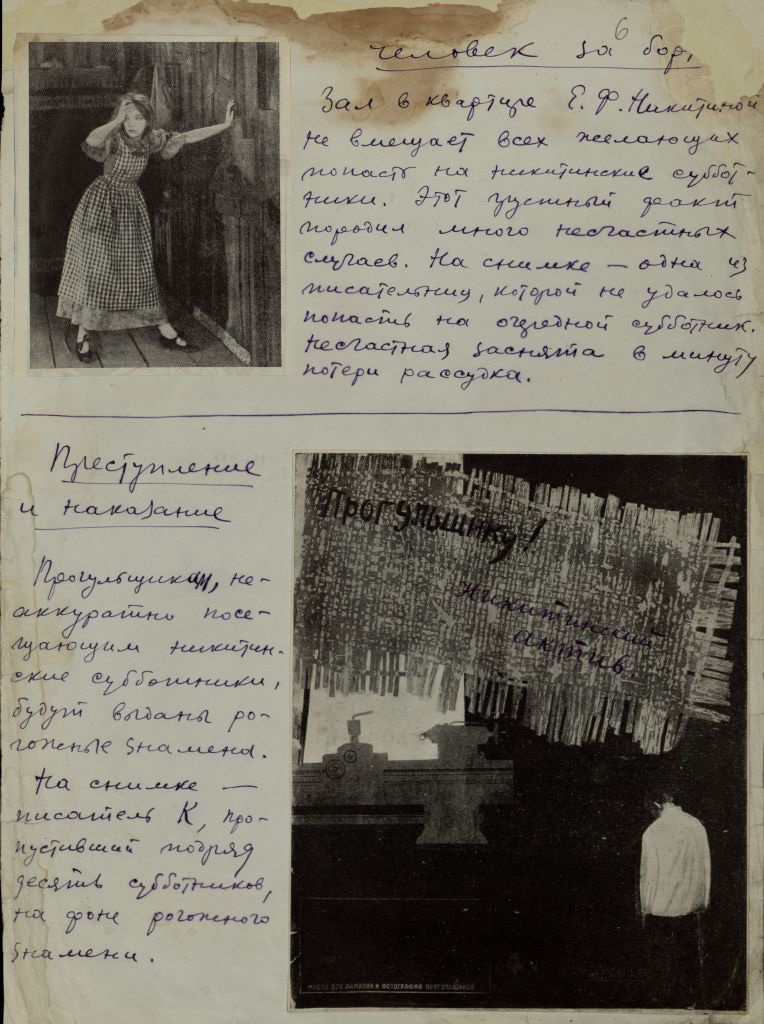 6
человек за бор.
Зал в квартире Е. Ф. Никитиной
не вмещает всех желающих
попасть на никитинские суббот-
ники. Этот грустный факт
породил много несчастных
случаев. На снимке — одна из
писательниц, которой не удалось
попасть на очередной субботник.
Несчастная заснята в минуту
потери рассудка.
Преступление
и наказание
Прогульщикам, не-
аккуратно посе-
щающим никитин-
ские субботники,
будут выданы ро-
гожные знамена.
На снимке —
писатель К, про-
пустивший подряд
десять субботников,
на фоне рогожного
знамени.
Прогульщику!
Никитинский
актив.
МЕСТО ДЛЯ ФАМИЛИИ И ФОТОГРАФИИ ПРОГУЛЬЩИКА